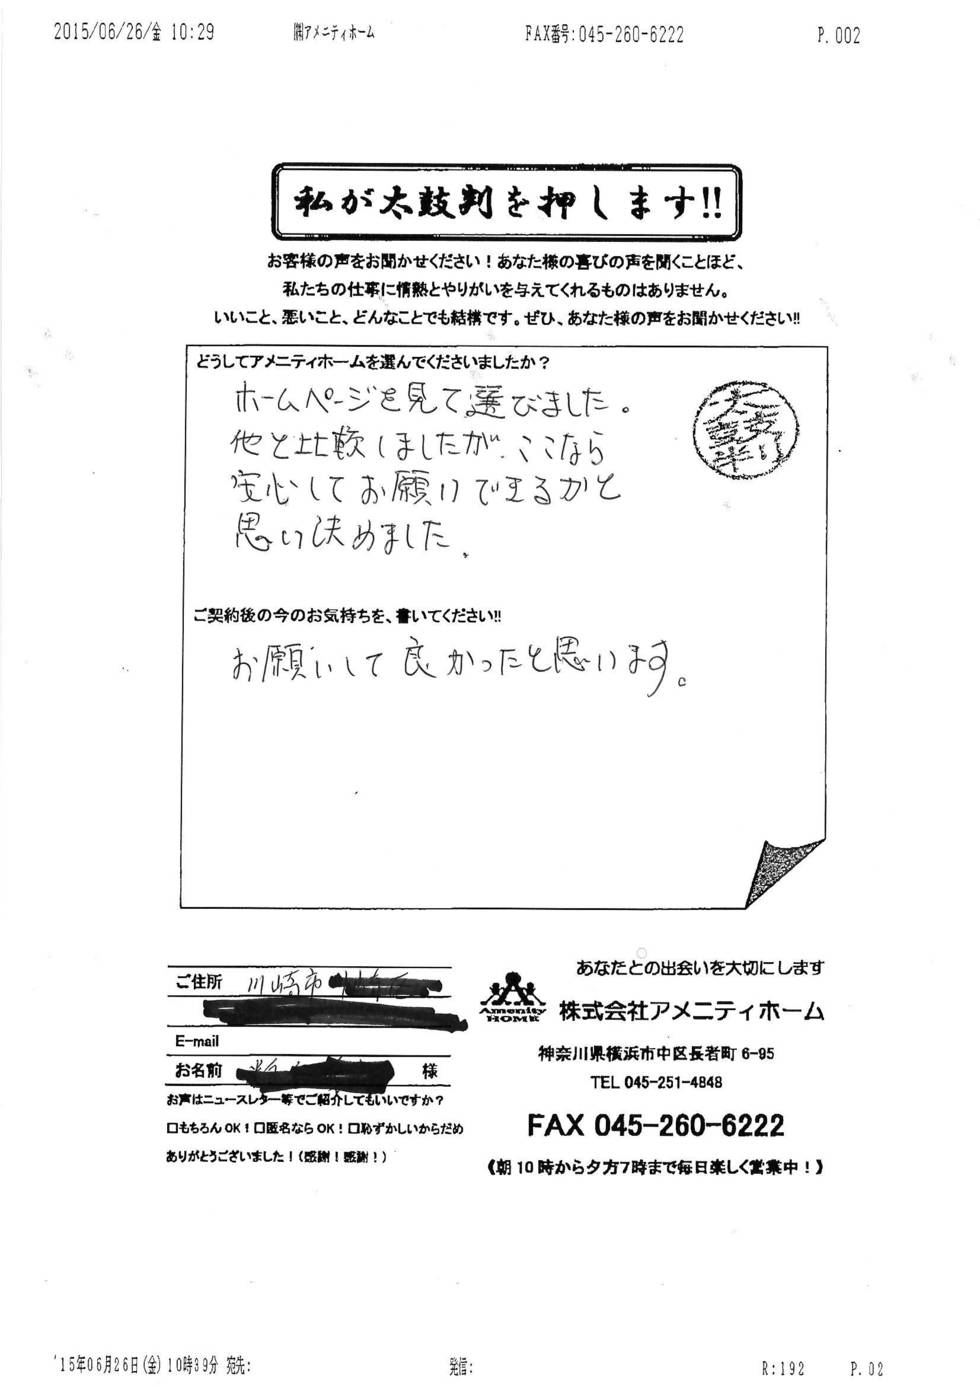 2015/06/26/金 10:29 ㈱アメニティホーム FAX番号:045-260-6222 P.002
私が太鼓判を押します!!
お客様の声をお聞かせください！あなた様の喜びの声を聞くことほど、
私たちの仕事に情熱とやりがいを与えてくれるものはありません。
いいこと、悪いこと、どんなことでも結構です。ぜひ、あなた様の声をお聞かせください!!
どうしてアメニティホームを選んでくださいましたか？
ホームページを見て選びました。
他と比較しましたが、ここなら
安心してお願いできるかと
思い決めました。
太鼓判
ご契約後の今のお気持ちを、書いてください!!
お願いして良かったと思います。
ご住所 川崎市
E-mail
お名前 様
お声はニュースレター等でご紹介してもいいですか？
口もちろんOK！口匿名ならOK！口恥ずかしいからだめ
ありがとうございました！（感謝！感謝！）
あなたとの出会いを大切にします
Amenity
HOME
株式会社アメニティホーム
神奈川県横浜市中区長者町6-95
TEL 045-251-4848
FAX 045-260-6222
《朝10時から夕方7時まで毎日楽しく営業中！》
'15年06月26日(金)10時39分 宛先: 発信: R:192 P.02